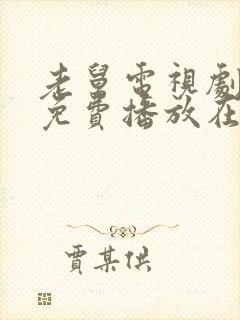 老舅電視劇
免費播放在
賈某供